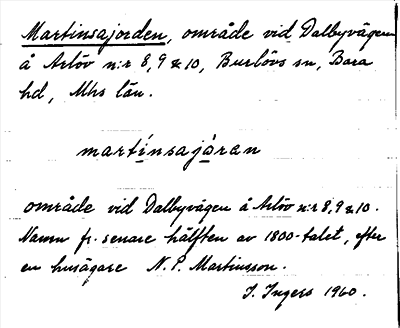 Martinsajorden, område vid Dalbyvägen
å Arlöv n:r 8, 9 & 10, Burlövs sn, Bara
hd, Mhs län.
martínsajọran
område vid Dalbyvägen å Arlöv n:r 8, 9 & 10.
Namn fr. senare hälften av 1800-talet, efter
en husägare N. P. Martinsson.
I. Ingers 1960.